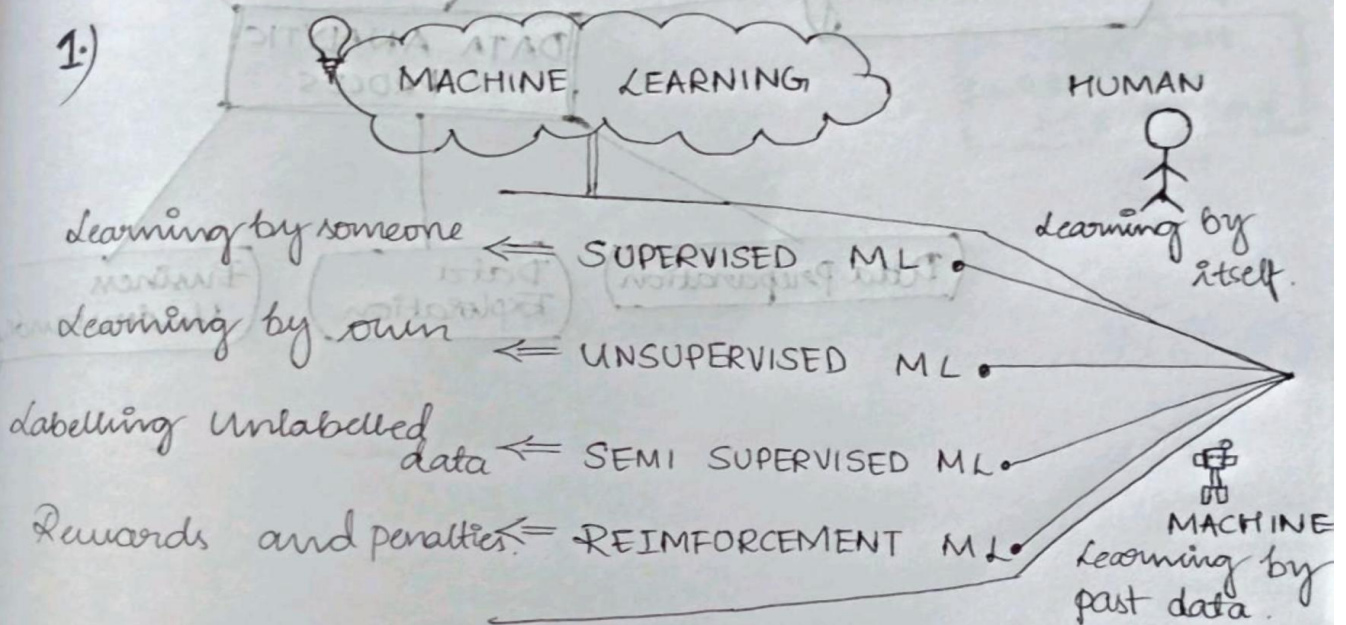 1.)
MACHINE LEARNING
HUMAN
Learning by
itself.
Learning by someone ⇐ SUPERVISED ML
Learning by own ⇐ UNSUPERVISED ML
Labelling Unlabelled
data ⇐ SEMI SUPERVISED ML
Rewards and penalties. ⇐ REIMFORCEMENT ML
MACHINE
Learning by
past data.